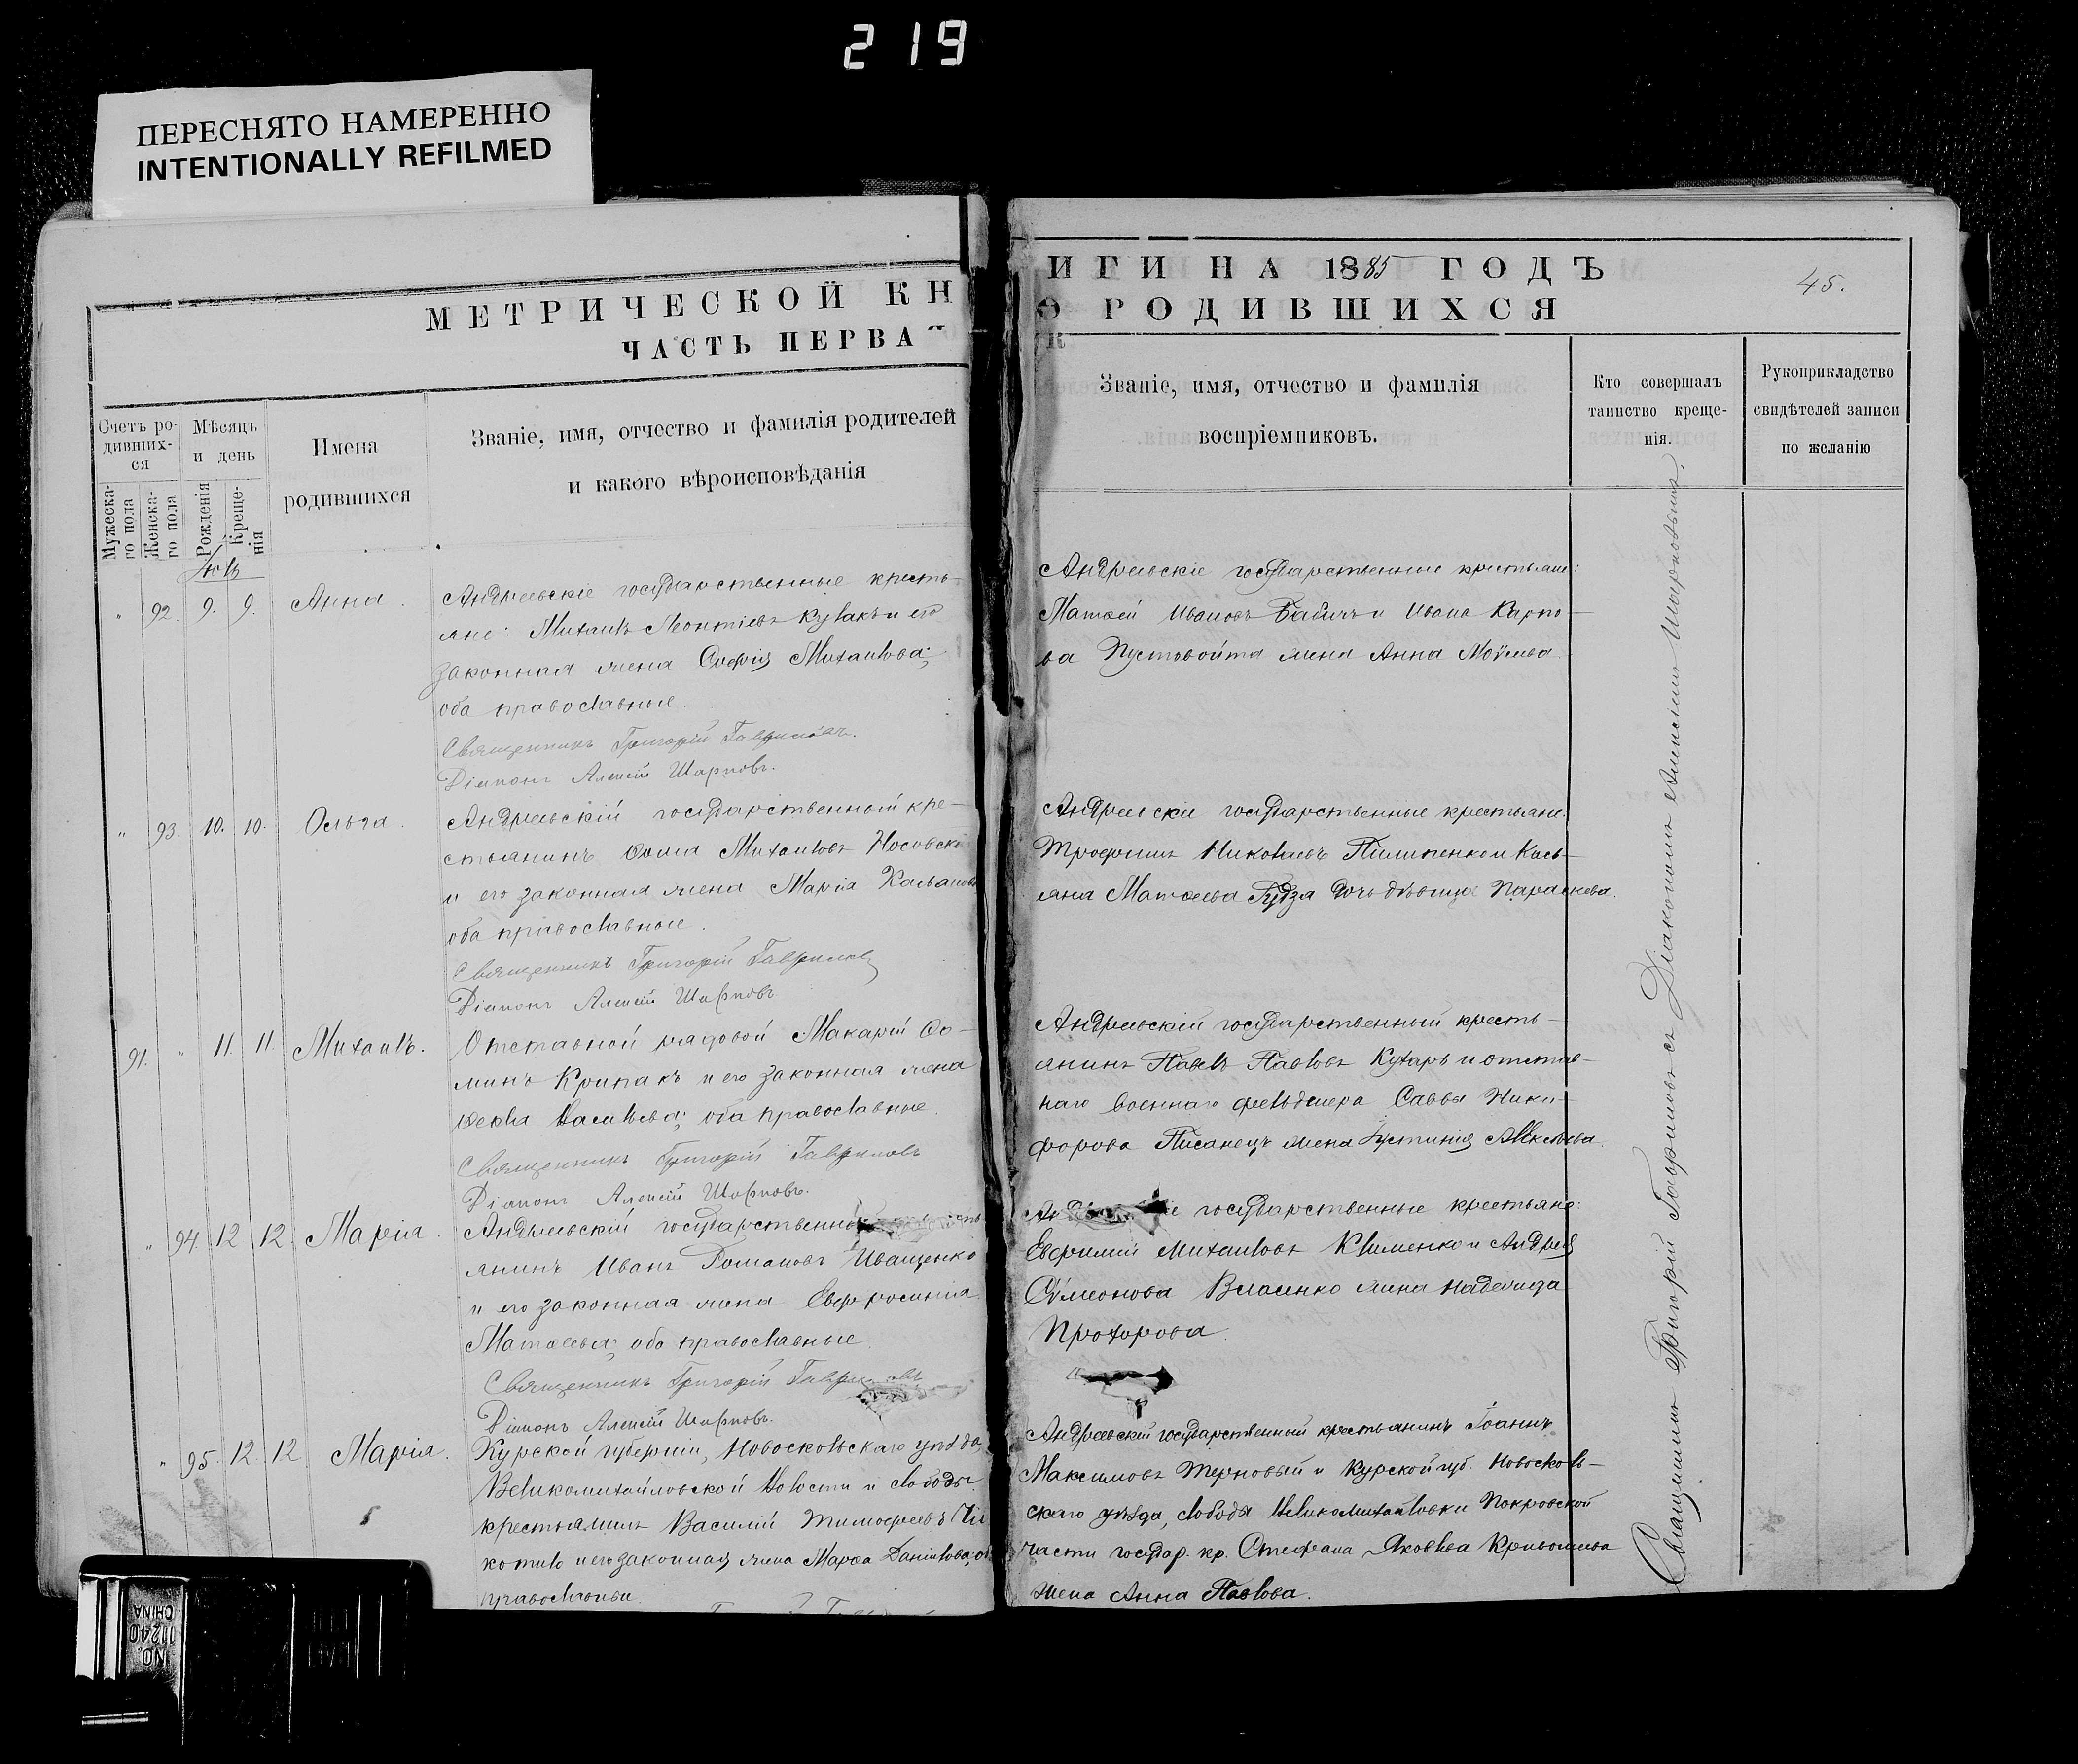 219
ПЕРЕСНЯТО НАМЕРЕННО
INTENTIONALLY REFILMED
МЕТРИЧЕСКОЙ КН
ИГИ НА 1885 ГОДЪ
45.
ЧАСТЬ ПЕРВА
О РОДИВШИХСЯ
Счетъ ро-
дивших-
ся
Мужеска-
го пола
Женска-
го пола
Мѣсяцъ
и день
Рожденія
Креще-
нія
Имена
родившихся
Званіе, имя, отчество и фамилія родителей
и какого вѣроисповѣданія
Званіе, имя, отчество и фамилія
воспріемниковъ.
Кто совершалъ
таинство креще-
нія.
Рукоприкладство
свидѣтелей записи
по желанію
" 92. 9. 9. Анна.
Андреевскіе государственные кресть-
яне: Михаилъ Леонтіевъ Кулакъ и его
законная жена Софія Михаилова;
оба православные.
Священникъ Григорій Гавриловъ.
Діаконъ Алексій Шарповъ.
Андреевскіе государственные крестьяне:
Матвей Ивановъ Бабичъ и Ивана Карпо-
ва Пустовойта жена Анна Моѵсеева
" 93. 10. 10. Ольга.
Андреевскій государственный кре-
стьянинъ Ѳома Михаиловъ Носовск
и его законная жена Марія Касьанов
оба православные.
Священникъ Григорій Гавриловъ
Діаконъ Алексій Шарповъ.
Андреевскіе государственные крестьяне:
Трофимъ Николаевъ Пилипенко и Кась-
яна Матѳеева Гудза дочь дѣвица Параскева.
91. " 11. 11. Михаилъ.
Отставной рядовой Макарій Ѳо-
минъ Крипакъ и его законная жена
Ѳекла Васильева; оба православные.
Священникъ Григорій Гавриловъ
Діаконъ Алексій Шарповъ.
Андреевскій государственный кресть-
янинъ Павелъ Павловъ Кухарь и отстав-
наго военнаго фельдшера Саввы Ники-
форова Писанецъ жена Іустинія Алексѣева.
" 94. 12 12. Марія.
Андреевскій государственны
янинъ Иванъ Романовъ Иващенко
и его законная жена Евфросинія
Матѳеева; оба православные.
Священникъ Григорій Гавриловъ
Діаконъ Алексій Шарповъ.
государственные крестьяне:
Евфимій Михаиловъ Клименко и Андрея
Сѵмеонова Власенко жена Надежда
Прохорова.
" 95. 12. 12 Марія.
Курской губерніи, Новоскольскаго уѣзда,
Великомихайловской волости и слободы
крестьянинъ Василій Тимофеевъ
и его законная жена Марѳа Даніилова;
православные.
Андреевскій государственный крестьянинъ Іоаннъ
Максимовъ Терновый и Курской губ. Новосколь-
скаго уѣзда, слободы Великомихайловки Покровской
части государ. кр. Стефана Яковлева
жена Анна Павлова.
Священникъ Григорій Гавриловъ съ Діакономъ Алексіемъ
NO. 11240
CHINA